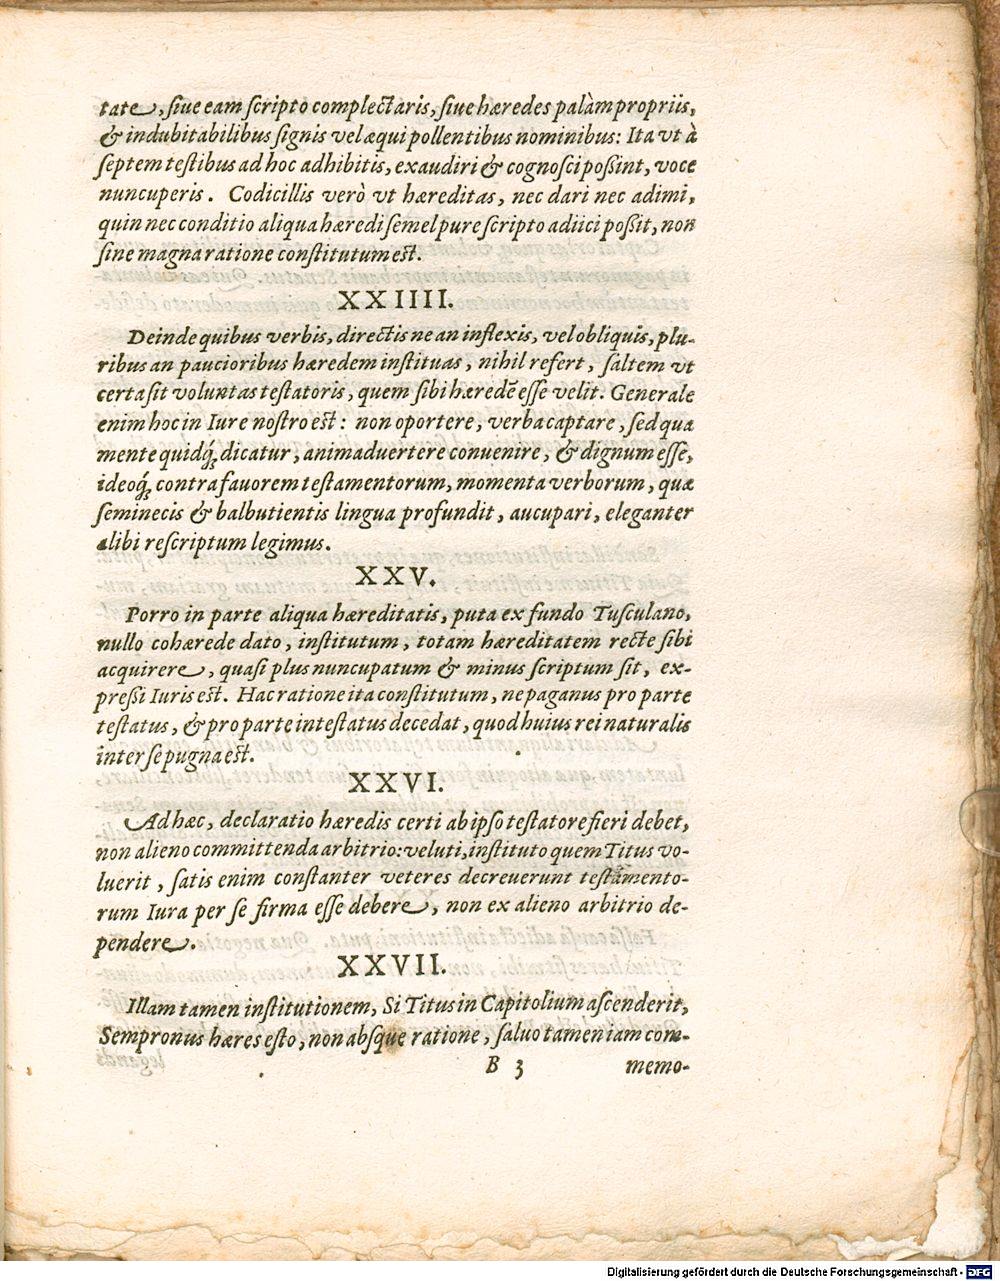 tate, siue eam scripto complectaris, siue hæredes palàm propriis,
& indubitabilibus signis vel æquipollentibus nominibus: Ita vt à
septem testibus ad hoc adhibitis, exaudiri & cognosci poßint, voce
nuncuperis. Codicillis verò vt hæreditas, nec dari nec adimi,
quin nec conditio aliqua hæredi semel pure scripto adiici poßit, non
sine magna ratione constitutum est.
XXIIII.
Deinde quibus verbis, directis ne an inflexis, vel obliquis, plu-
ribus an paucioribus hæredem instituas, nihil refert, saltem vt
certa sit voluntas testatoris, quem sibi hæredē esse velit. Generale
enim hoc in Iure nostro est: non oportere, verba captare, sed qua
mente quidq́; dicatur, animaduertere conuenire, & dignum esse,
ideoq́; contra fauorem testamentorum, momenta verborum, quæ
seminecis & balbutientis lingua profundit, aucupari, eleganter
alibi rescriptum legimus.
XXV.
Porro in parte aliqua hæreditatis, puta ex fundo Tusculano,
nullo cohærede dato, institutum, totam hæreditatem recte sibi
acquirere, quasi plus nuncupatum & minus scriptum sit, ex-
preßi Iuris est. Hac ratione ita constitutum, ne paganus pro parte
testatus, & pro parte intestatus decedat, quod huius rei naturalis
inter se pugna est.
XXVI.
Ad hæc, declaratio hæredis certi ab ipso testatore fieri debet,
non alieno committenda arbitrio: veluti, instituto quem Titus vo-
luerit, satis enim constanter veteres decreuerunt testamento-
rum Iura per se firma esse debere, non ex alieno arbitrio de-
pendere.
XXVII.
Illam tamen institutionem, Si Titus in Capitolium ascenderit,
Sempronus hæres esto, non absque ratione, saluo tamen iam com-
B 3 memo-
Digitalisierung gefördert durch die Deutsche Forschungsgemeinschaft - DFG